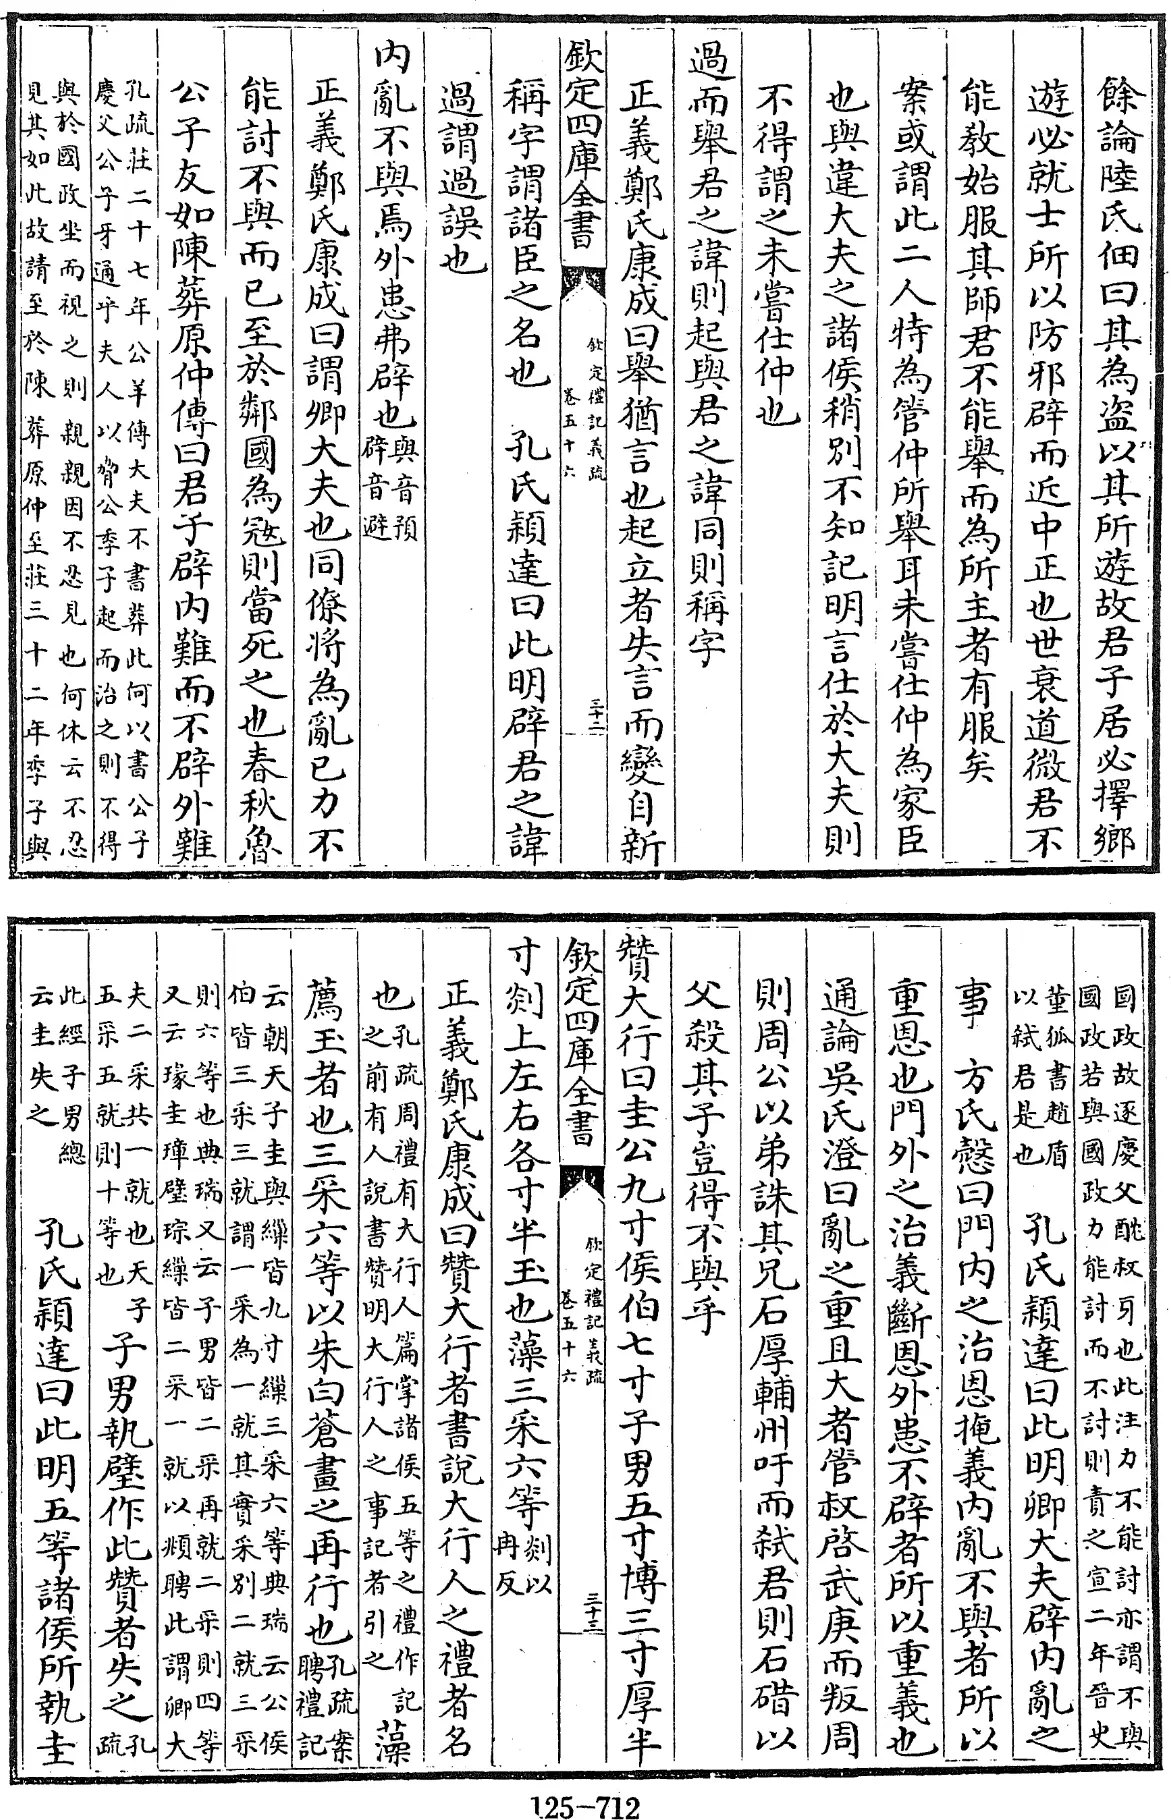 餘論陸氏佃曰其為盜以其所遊故君子居必擇鄉
遊必就士所以防邪辟而近中正也世衰道微君不
能教始服其師君不能舉而為所主者有服矣
案或謂此二人特為管仲所舉耳未嘗仕仲為家臣
也與違大夫之諸侯稍別不知記明言仕於大夫則
不得謂之未嘗仕仲也
過而舉君之諱則起與君之諱同則稱字
正義鄭氏康成曰舉猶言也起立者失言而變自新
欽定四庫全書
欽定禮記義疏
卷五十六
三十二
稱字謂諸臣之名也　孔氏穎達曰此明辟君之諱
過謂過誤也
內亂不與焉外患弗辟也
與音預
辟音避
正義鄭氏康成曰謂卿大夫也同僚將為亂己力不
能討不與而已至於鄰國為寇則當死之也春秋魯
公子友如陳葬原仲傳曰君子辟內難而不辟外難
孔疏莊二十七年公羊傳大夫不書葬此何以書公子
慶父公子牙通乎夫人以脅公季子起而治之則不得
與於國政坐而視之則親親因不忍見也何休云不忍
見其如此故請至於陳葬原仲至莊三十二年季子與
國政故逐慶父酖叔牙也此注力不能討亦謂不與
國政若與國政力能討而不討則責之宣二年晉史
董狐書趙盾
以弒君是也
孔氏穎達曰此明卿大夫辟內亂之
事　方氏慤曰門內之治恩掩義內亂不與者所以
重恩也門外之治義斷恩外患不辟者所以重義也
通論吳氏澄曰亂之重且大者管叔啓武庚而叛周
則周公以弟誅其兄石厚輔州吁而弒君則石碏以
父殺其子豈得不與乎
贊大行曰圭公九寸侯伯七寸子男五寸博三寸厚半
欽定四庫全書
欽定禮記義疏
卷五十六
三十三
寸剡上左右各寸半玉也藻三采六等
剡以
冉反
正義鄭氏康成曰贊大行者書說大行人之禮者名
也
孔疏周禮有大行人篇掌諸侯五等之禮作記
之前有人說書贊明大行人之事記者引之
藻
薦玉者也三采六等以朱白蒼畫之再行也
孔疏案
聘禮記
云朝天子圭與繅皆九寸繅三采六等典瑞云公侯
伯皆三采三就謂一采為一就其實采別二就三采
則六等也典瑞又云子男皆二采再就二采則四等
又云瑑圭璋璧琮繅皆二采一就以頫聘此謂卿大
夫二采共一就也天子
五采五就則十等也
子男執璧作此贊者失之
孔
疏
此經子男總
云圭失之
孔氏穎達曰此明五等諸侯所執圭
125-712